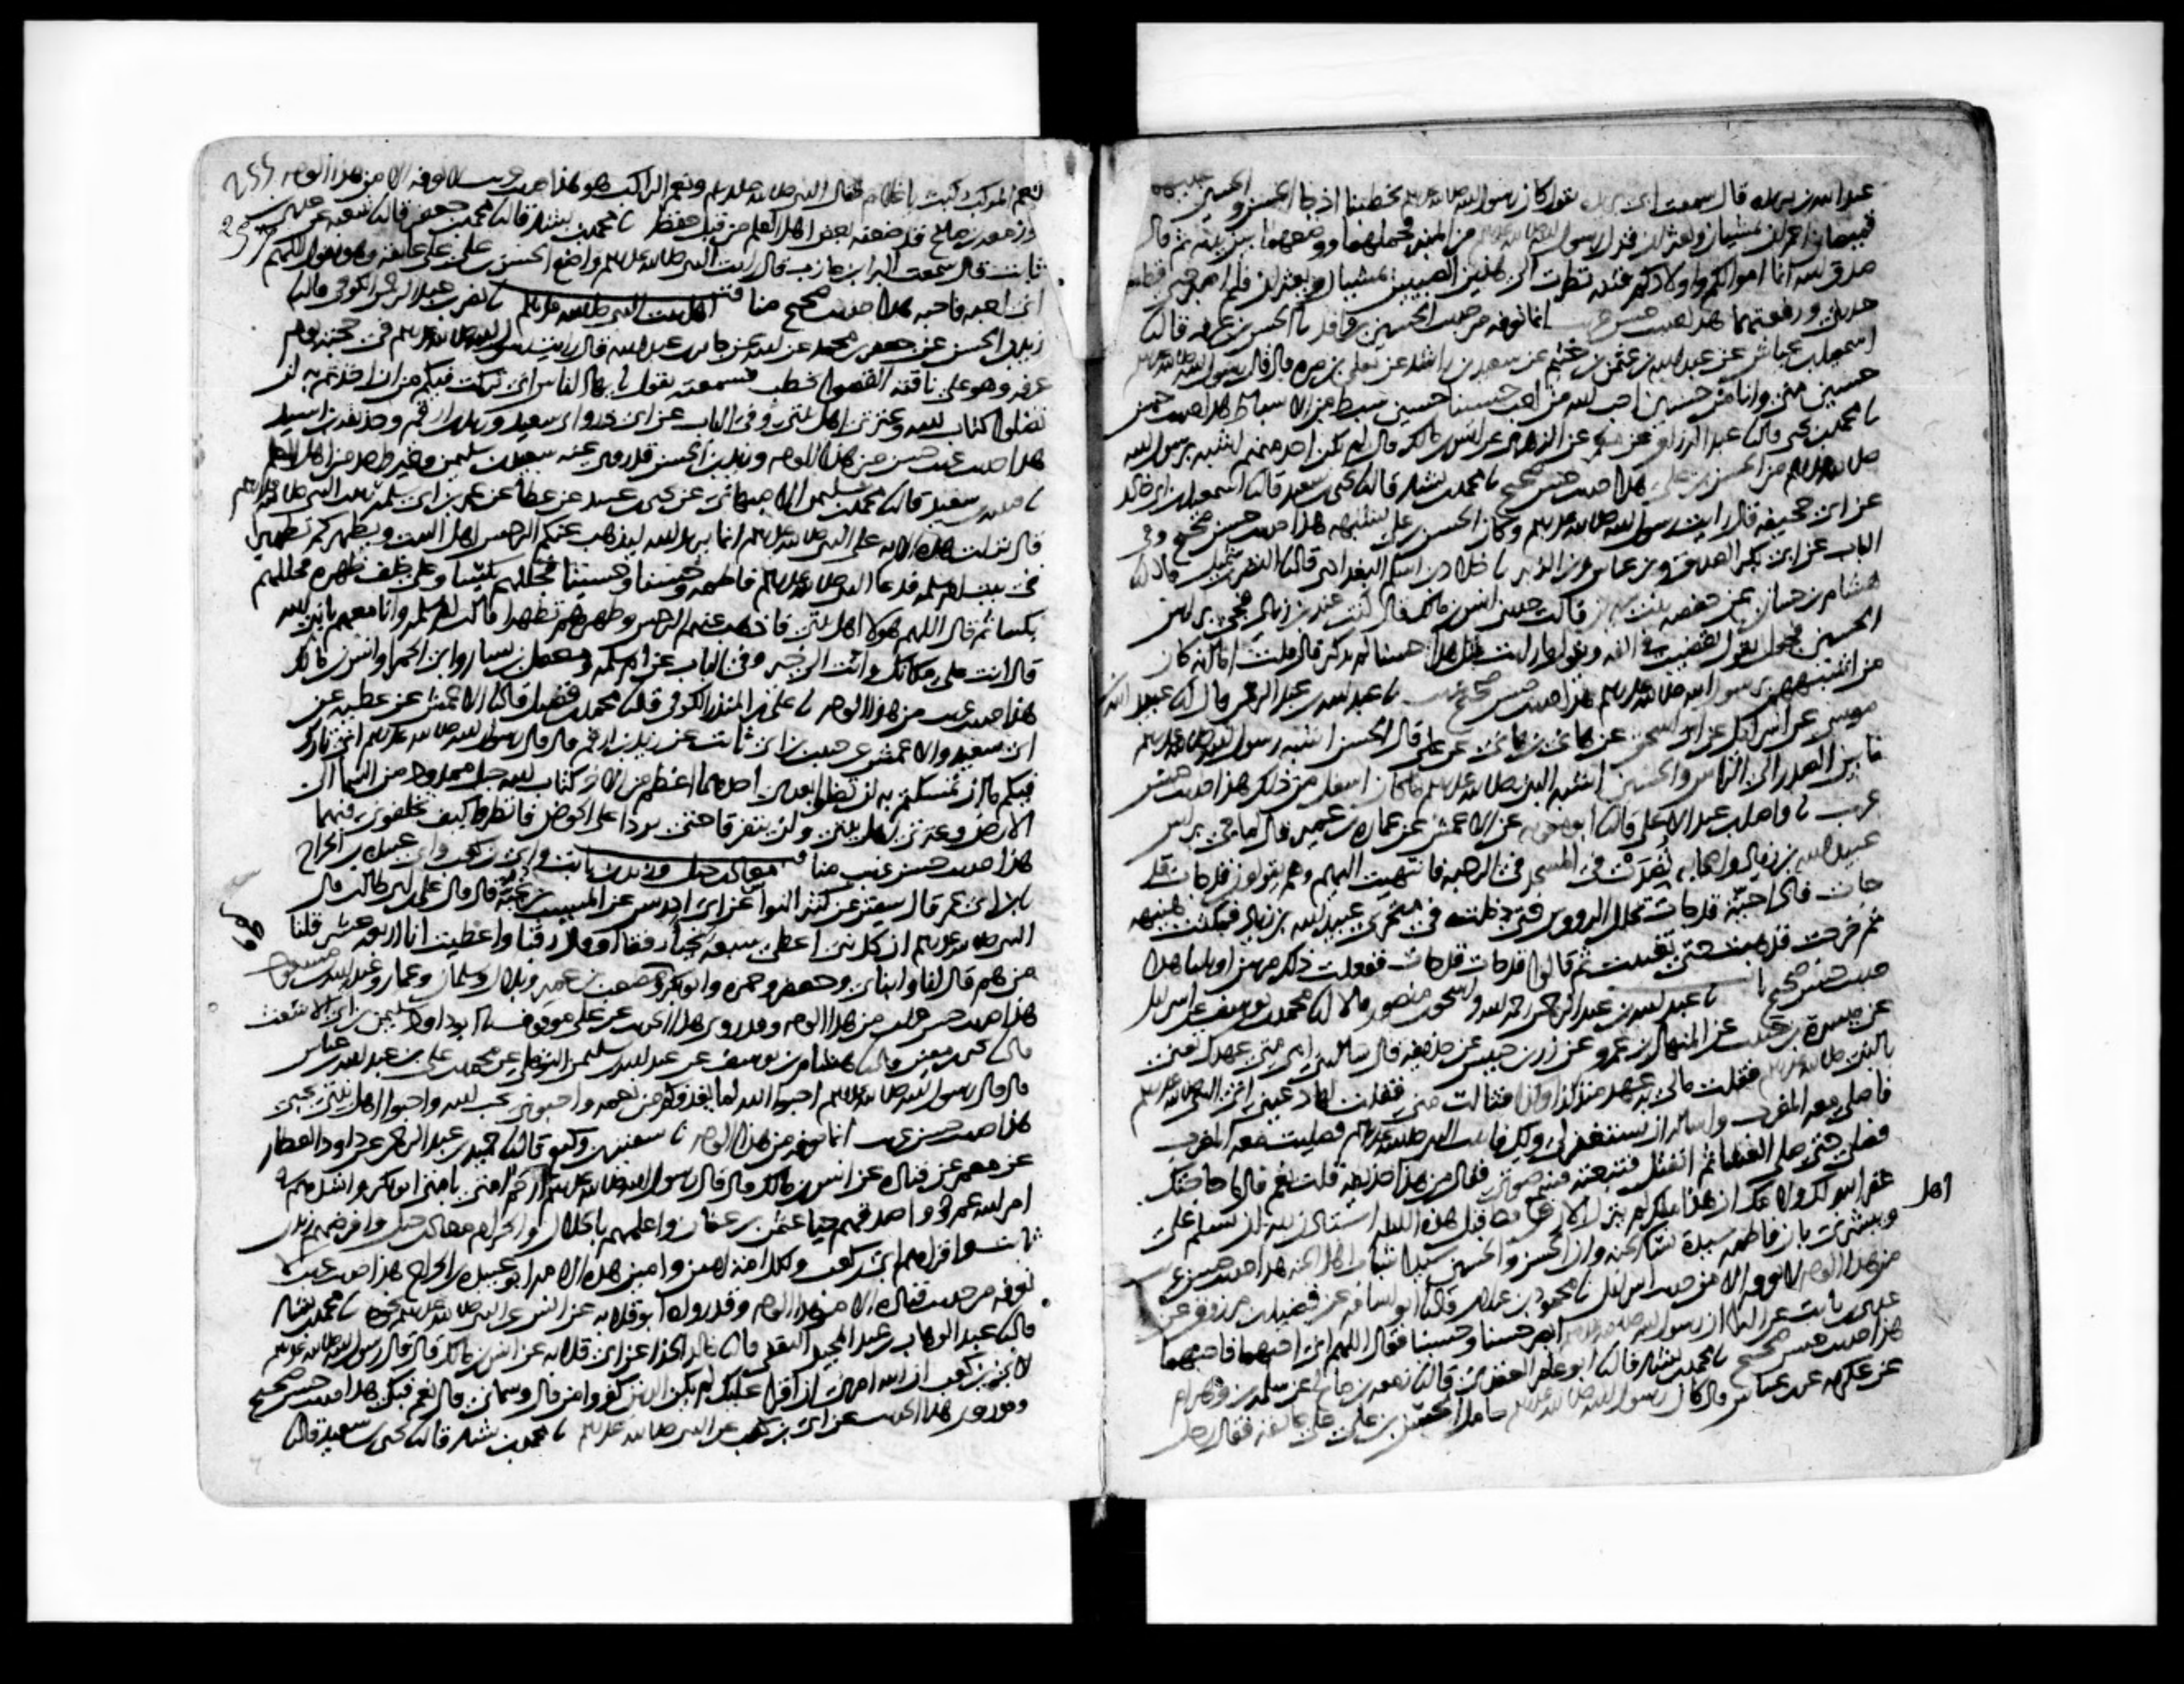 عبد الله بن بريده قال سمعت ابى بريده يقول كان رسول الله صلى الله عليه وسلم يخطبنا اذ جا الحسن والحسين عليهما
قميصان احمران يمشيان ويعثران فنزل رسول الله صلى الله عليه وسلم من المنبر فحملهما ووضعهما بين يديه ثم قال
صدق الله انما اموالكم واولادكم فتنه نظرت الى هذين الصبيين يمشيان ويعثران فلم اصبر حتى قطعت
حديثى ورفعتهما هذا حديث حسن غريب انما نعرفه من حديث الحسين بن واقد نا الحسن بن عرفه قال نا
اسمعيل بن عياش عن عبد الله بن عثمن بن خثيم عن سعيد بن راشد عن يعلى بن مره قال قال رسول الله صلى الله عليه وسلم
حسين منى وانا من حسين احب الله من احب حسينا حسين سبط من الاسباط هذا حديث حسن
نا محمد بن يحيى قال نا عبد الرزاق عن معمر عن الزهرى عن انس بن مالك قال لم يكن احد منهم اشبه برسول الله
صلى الله عليه وسلم من الحسن بن على هذا حديث حسن صحيح نا محمد بن بشار قال نا يحيى بن سعيد قال نا اسمعيل بن ابى خالد
عن ابى جحيفه قال رايت رسول الله صلى الله عليه وسلم وكان الحسن بن على يشبهه هذا حديث حسن صحيح وفى
الباب عن ابى بكر الصديق وبن عباس وبن الزبير نا خلاد بن اسلم البغدادى قال نا النضر بن شميل قال نا
هشام بن حسان عن حفصه بنت سيرين قالت حدثنى انس بن مالك قال كنت عند بن زياد فجى براس
الحسين فجعل يقول بقضيب فى انفه ويقول ما رايت مثل هذا حسنا لم يذكر قال قلت اما انه كان
من اشبههم برسول الله صلى الله عليه وسلم هذا حديث حسن صحيح غريب نا عبد الله بن عبد الرحمن قال نا عبيد الله بن
موسى عن اسرايل عن ابى اسحق عن هانى بن هانى عن على قال الحسن اشبه رسول الله صلى الله عليه وسلم
ما بين الصدر الى الراس والحسين اشبه النبى صلى الله عليه وسلم ما كان اسفل من ذلك هذا حديث حسن
غريب نا واصل بن عبد الاعلى قال نا ابو معويه عن الاعمش عن عماره بن عمير قال لما جى براس
عبيد الله بن زياد واصحابه نضدت فى المسجد فى الرحبه فانتهيت اليهم وهم يقولون قد جات قد
جات فاذا حيه قد جات تخلل الرووس حتى دخلت فى منخرى عبيد الله بن زياد فمكثت هنيهه
ثم خرجت فذهبت حتى تغيبت ثم قالوا قد جات قد جات ففعلت ذلك مرتين او ثلثا هذا
حديث حسن صحيح نا عبد الله بن عبد الرحمن رحمه الله واسحق بن منصور قالا نا محمد بن يوسف عن اسرايل
عن ميسره بن حبيب عن المنهال بن عمرو عن زر بن حبيش عن حذيفه قال سالتنى امى متى عهدك تعنى
بالنبى صلى الله عليه وسلم فقلت مالى به عهد منذ كذا وكذا فنالت منى فقلت لها دعينى اتى النبى صلى الله عليه وسلم
فاصلى معه المغرب واساله ان يستغفر لى ولك فاتيت النبى صلى الله عليه وسلم فصليت معه المغرب
فصلى حتى صلى العشا ثم انفتل فتبعته فسمع صوتى فقال من هذا حذيفه قلت نعم قال ما حاجتك
غفر الله لك ولامك ان هذا ملك لم ينزل الارض قط قبل هذه الليله استاذن ربه ان يسلم على
ويبشرنى بان فاطمه سيدة نسا اهل الجنه وان الحسن والحسين سيدا شباب اهل الجنه هذا حديث حسن غريب
اهل
من هذا الوجه لا نعرفه الا من حديث اسرايل نا محمود بن غيلان قال نا ابو اسامه عن فضيل بن مرزوق عن
عدى بن ثابت عن البرا ان رسول الله صلى الله عليه وسلم ابصر حسنا وحسينا فقال اللهم انى احبهما فاحبهما
هذا حديث حسن صحيح نا محمد بن بشار قال نا ابو عامر العقدى قال نا زمعه بن صالح عن سلمه بن وهرام
عن عكرمه عن بن عباس قال كان رسول الله صلى الله عليه وسلم حامل الحسين بن على على عاتقه فقال رجل
نعم المركب ركبت يا غلام فقال النبى صلى الله عليه وسلم ونعم الراكب هو هذا حديث غريب لا نعرفه الا من هذا الوجه
وزمعه بن صالح قد ضعفه بعض اهل العلم من قبل حفظه نا محمد بن بشار قال نا محمد بن جعفر قال نا شعبه عن عدى بن
ثابت قال سمعت البرا بن عازب قال رايت النبى صلى الله عليه وسلم واضع الحسن بن على على عاتقه وهو يقول اللهم
انى احبه فاحبه هذا حديث صحيح مناقب اهل بيت النبى صلى الله عليه وسلم نا نصر بن عبد الرحمن الكوفى قال نا
زيد بن الحسن عن جعفر بن محمد عن ابيه عن جابر بن عبد الله قال رايت رسول الله صلى الله عليه وسلم فى حجته يوم
عرفه وهو على ناقته القصوا يخطب فسمعته يقول يا ايها الناس انى تركت فيكم من ان اخذتم به لن
تضلوا كتاب الله وعترتى اهل بيتى وفى الباب عن ابى ذر وابى سعيد وزيد بن ارقم وحذيفه بن اسيد
هذا حديث غريب حسن من هذا الوجه وزيد بن الحسن قد روى عنه سعيد بن سليمن وغير واحد من اهل العلم
نا قتيبه بن سعيد قال نا محمد بن سليمن الاصبهانى عن يحيى بن عبيد عن عطا عن عمر بن ابى سلمه ربيب النبى صلى الله عليه وسلم
قال نزلت هذه الايه على النبى صلى الله عليه وسلم انما يريد الله ليذهب عنكم الرجس اهل البيت ويطهركم تطهيرا
فى بيت ام سلمه فدعا النبى صلى الله عليه وسلم فاطمه وحسنا وحسينا فجللهم بكسا وعلى خلف ظهره فجللهم
بكسا ثم قال اللهم هولا اهل بيتى فاذهب عنهم الرجس وطهرهم تطهيرا قالت ام سلمه وانا معهم يا نبى الله
قال انت على مكانك وانت الى خير وفى الباب عن ام سلمه ومعقل بن يسار وابى الحمرا وانس بن مالك
هذا حديث غريب من هذا الوجه نا على بن المنذر الكوفى قال نا محمد بن فضيل قال نا الاعمش عن عطيه عن
ابى سعيد والاعمش عن حبيب بن ابى ثابت عن زيد بن ارقم قال قال رسول الله صلى الله عليه وسلم انى تارك
فيكم ما ان تمسكتم به لن تضلوا بعدى احدهما اعظم من الاخر كتاب الله حبل ممدود من السما الى
الارض وعترتى اهل بيتى ولن يتفرقا حتى يردا على الحوض فانظروا كيف تخلفونى فيهما
هذا حديث حسن غريب مناقب معاذ بن جبل وزيد بن ثابت وابى بن كعب وابى عبيده بن الجراح
نا بن ابى عمر قال نا سفين عن كثير النوا عن ابى ادريس عن المسيب بن نجبه قال قال على بن ابى طالب قال
النبى صلى الله عليه وسلم ان كل نبى اعطى سبعه نجبا رفقا او قال رقبا واعطيت انا اربعه عشر قلنا
من هم قال انا وابناى وجعفر وحمزه وابو بكر وعمر ومصعب بن عمير وبلال وسلمان وعمار وعبد الله بن مسعود
هذا حديث حسن غريب من هذا الوجه وقد روى هذا الحديث عن على موقوف نا ابو داود سليمن بن الاشعث
قال نا يحيى بن معين قال نا هشام بن يوسف عن عبد الله بن سليمن النوفلى عن محمد بن على بن عبد الله بن عباس
قال قال رسول الله صلى الله عليه وسلم احبوا الله لما يغذوكم من نعمه واحبونى بحب الله واحبوا اهل بيتى بحبى
هذا حديث حسن غريب انما نعرفه من هذا الوجه نا سفين بن وكيع قال نا حميد بن عبد الرحمن عن داود العطار
عن معمر عن قتاده عن انس بن مالك قال قال رسول الله صلى الله عليه وسلم ارحم امتى بامتى ابو بكر واشدهم فى
امر الله عمر واصدقهم حيا عثمن بن عفان واعلمهم بالحلال والحرام معاذ بن جبل وافرضهم زيد بن
ثابت واقراهم ابى بن كعب ولكل امه امين وامين هذه الامه ابو عبيده بن الجراح هذا حديث غريب لا
نعرفه من حديث قتاده الا من هذا الوجه وقد رواه ابو قلابه عن انس عن النبى صلى الله عليه وسلم نحوه نا محمد بن بشار
قال نا عبد الوهاب بن عبد المجيد الثقفى قال نا خالد الحذا عن ابى قلابه عن انس بن مالك قال قال رسول الله صلى الله عليه وسلم
لابى بن كعب ان الله امرنى ان اقرا عليك لم يكن الذين كفروا قال وسمانى قال نعم فبكى هذا حديث حسن صحيح
وقد روى هذا الحديث عن ابى بن كعب عن النبى صلى الله عليه وسلم نا محمد بن بشار قال نا يحيى بن سعيد قال نا